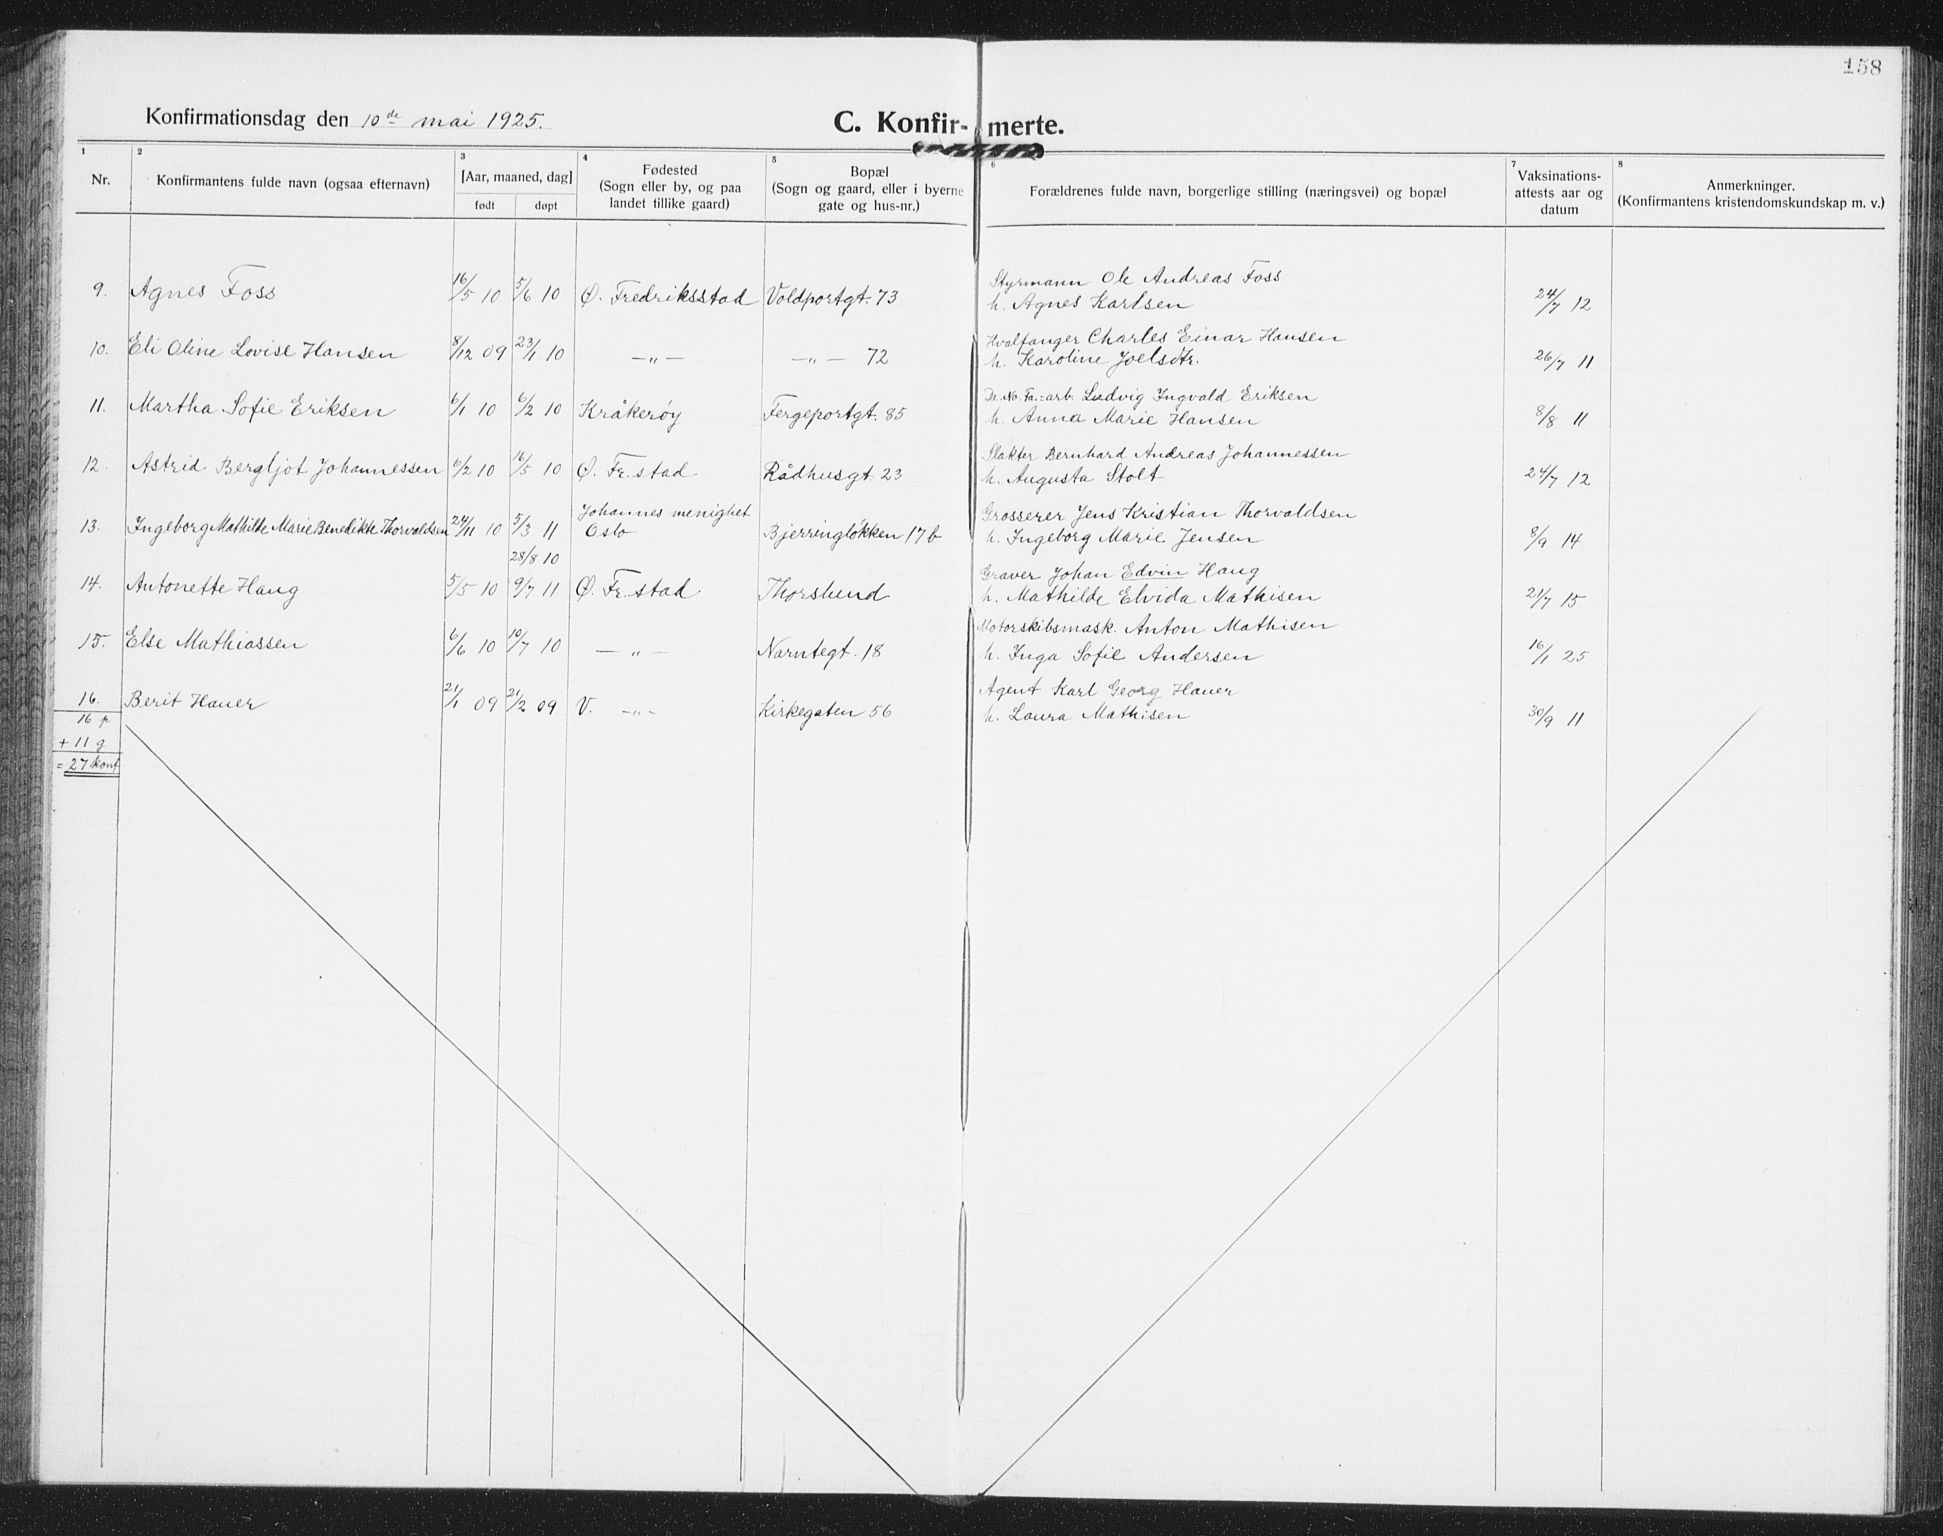 158
Konfirmationsdag den 10de mai 1925.
C. Konfir- merte.
1 2 3 4 5 6 7 8
Nr.
Konfirmantens fulde navn (ogsaa efternavn)
[Aar, maaned, dag]
født døpt
Fødested
(Sogn eller by, og paa
landet tillike gaard)
Bopæl
(Sogn og gaard, eller i byerne
gate og hus-nr.)
Forældrenes fulde navn, borgerlige stilling (næringsvei) og bopæl
Vaksinations-
attests aar og
datum
Anmerkninger.
(Konfirmantens kristendomskundskap m. v.)
Styrmann Ole Andreas Foss
9. Agnes Foss 16/5 10 5/6 10 Ø. Fredriksstad Voldportgt. 73 h. Agnes Karlsen 24/7 12
Hvalfanger Charles Einar Hansen
10. Eli Oline Lovise Hansen 8/12 09 23/1 10 —„— —„— 72 h. Karoline Joelsdtr. 26/7 11
De. No. Fa.=arb. Ludvig Ingvald Eriksen
11. Martha Sofie Eriksen 6/1 10 6/2 10 Kråkerøy Fergeportgt. 85 h. Anna Marie Hansen 8/8 11
Slakter Bernhard Andreas Johannessen
12. Astrid Bergljot Johannessen 6/2 10 16/5 10 Ø. Fr.stad Rådhusgt. 23 h. Augusta Stolt 24/7 12
Johannes menighet Grosserer Jens Kristian Thorvaldsen
13. Ingeborg Mathilde Marie Benedikte Thorvaldsen 24/11 10 5/3 11 Oslo Bjerringløkken 17b h. Ingeborg Marie Jensen 8/9 14
28/8 10
Graver Johan Edvin Haug
14. Antonette Haug 5/5 10 9/7 11 Ø. Fr.stad Thorslund h. Mathilde Elvida Mathisen 21/7 15
Motorskibsmask. Anton Mathisen
15. Else Mathiassen 6/6 10 10/7 10 —„— Narntegt. 18 h. Inga Sofie Andersen 16/1 25
Agent Karl Georg Hauer
16. Berit Hauer 21/1 09 21/2 09 V. —„— Kirkegaten 56 h. Laura Mathisen 30/9 11
16 p
+ 11 g
= 27 konf